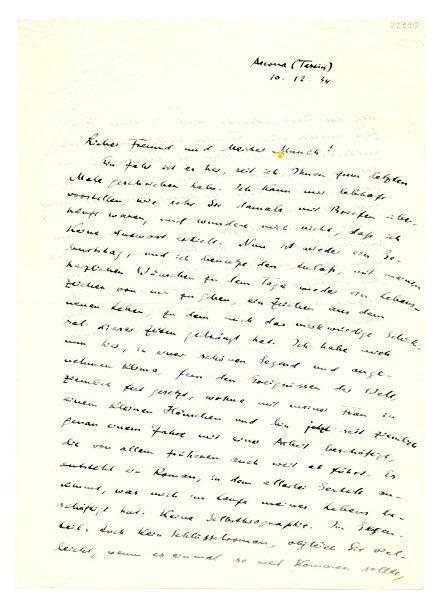 Ascona (Tessin)
10. 12. 34
Lieber Freund und Meister Munch!
Ein Jahr ist es her, seit ich Ihnen zum letzten
Male geschrieben habe. Ich kann mir lebhaft
vorstellen wie sehr Sie damals mit Briefen über-
häuft waren, und wundere mich nicht, daß ich
keine Antwort erhielt. Nun ist wieder ein Ge-
burtstag, und ich benutze den Anlaß, mit meinen
herzlichen Wünschen zu dem Tage wieder ein Lebens-
zeichen von mir zu geben, ein Zeichen aus dem
neuen Leben, zu dem mich das merkwürdige Schick-
sal dieser Zeiten gedrängt hat. Ich habe mich
nun hier, in einer schönen Gegend und ange-
nehmen Klima, fern den Ereignissen der Welt,
ziemlich fest gesetzt, wohne mit meiner Frau in
einem kleinen Häuschen und bin jetzt seit ziemlich
genau einem Jahre mit einer Arbeit beschäftigt,
die von allem früheren auch weit ab führt. Es
entsteht ein Roman, in dem allerlei Gestalt an-
nimmt, was mich im Laufe meines Lebens be-
schäftigt hat. Keine Selbstbiographie. Im Gegen-
teil. Auch kein Schlüsselroman, obgleich Sie viel-
leicht, wenn es einmal so weit kommen sollte,